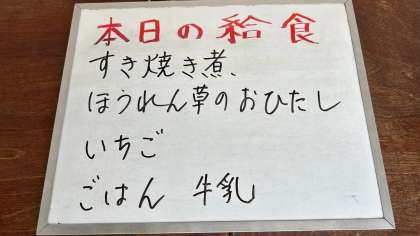 本日の給食
すき焼き煮、
ほうれん草のおひたし
いちご
ごはん 牛乳